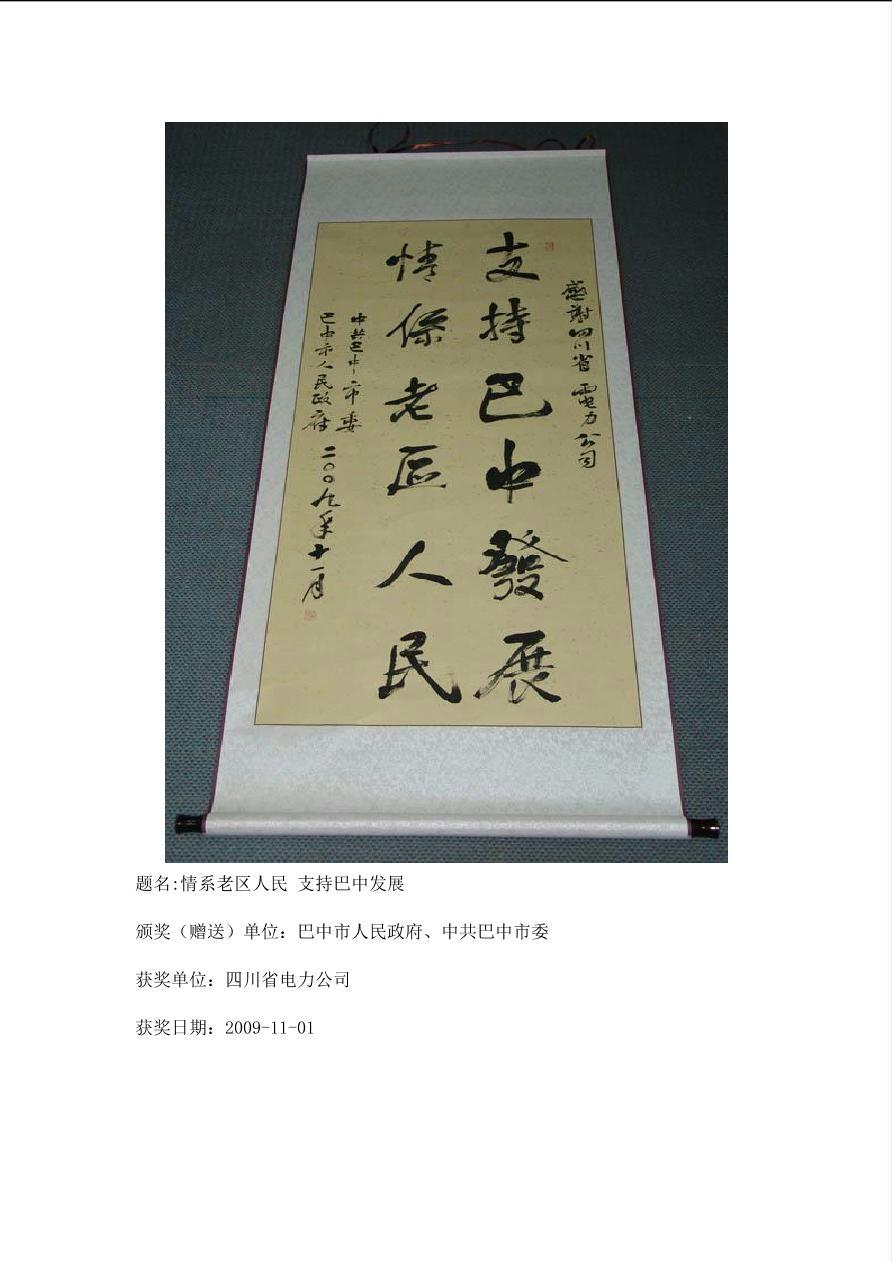 感謝四川省電力公司
支持巴中發展
情係老区人民
中共巴中市委
巴中市人民政府 二〇〇九年十一月
题名:情系老区人民 支持巴中发展
颁奖（赠送）单位：巴中市人民政府、中共巴中市委
获奖单位：四川省电力公司
获奖日期：2009-11-01